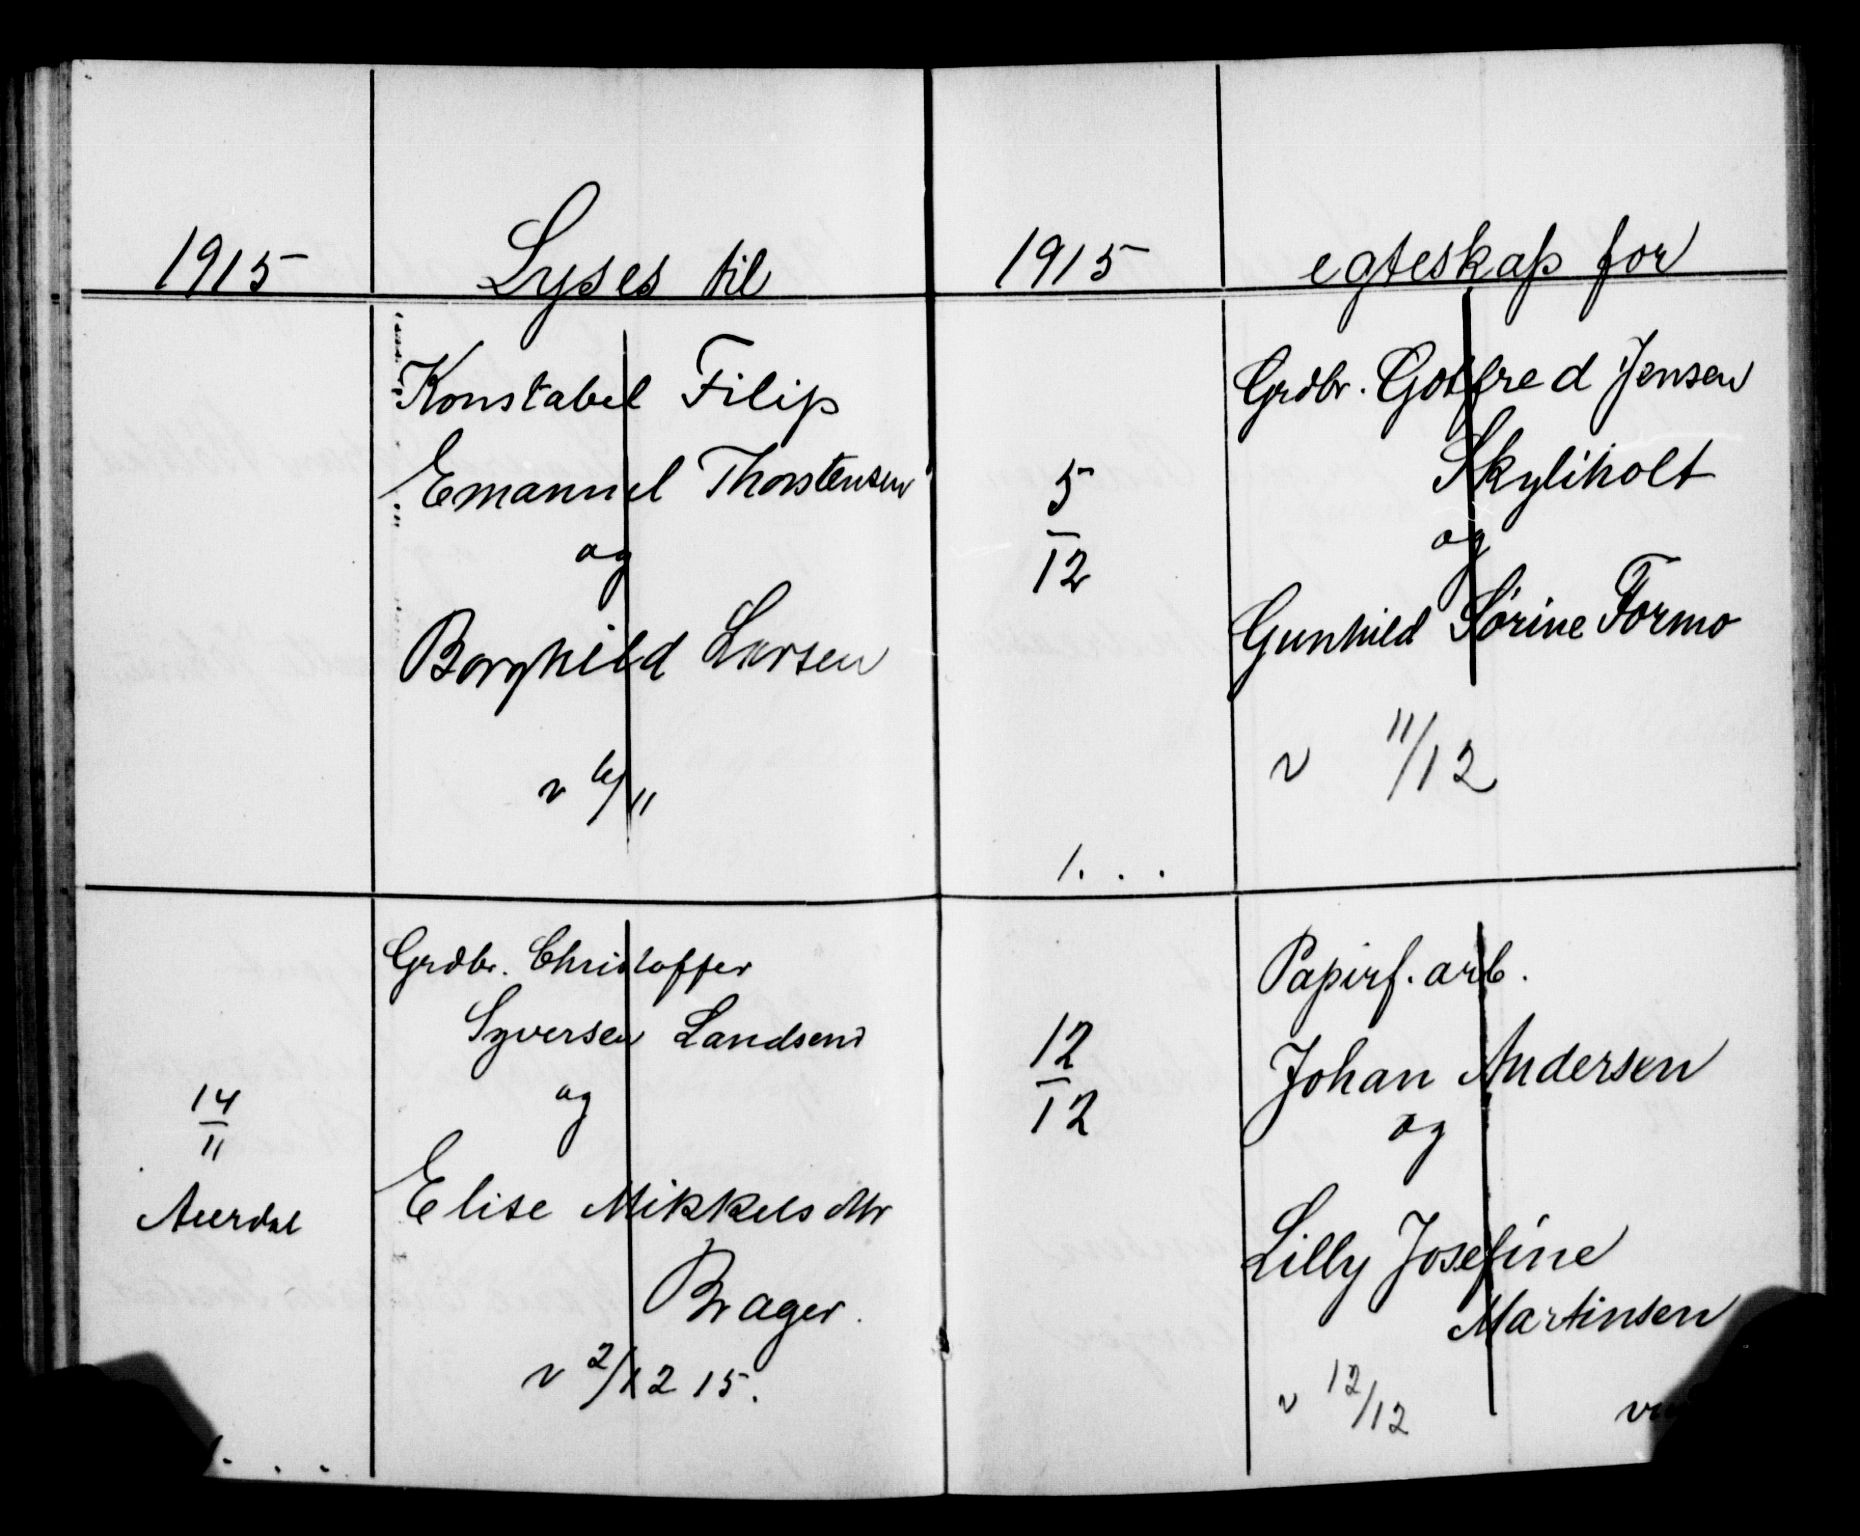 1915 Lyses til
Konstabel Filip
Emanuel Thorstensen
og
Borghild Larsen
v 6/11
14/11
Aurdal
Grdbr. Christoffer
Syversen Landsend
og
Elise Mikkelsdtr
Brager.
v 2/12 15.
1. . .
1915 egteskap for
5/12
Grdbr. Gotfred Jensen
Skyliholt
og
Gunhild Sørine Formo
v 11/12
1. . .
12/12
Papirf. arb.
Johan Andersen
og
Lilly Josefine
Martinsen
v 12/12